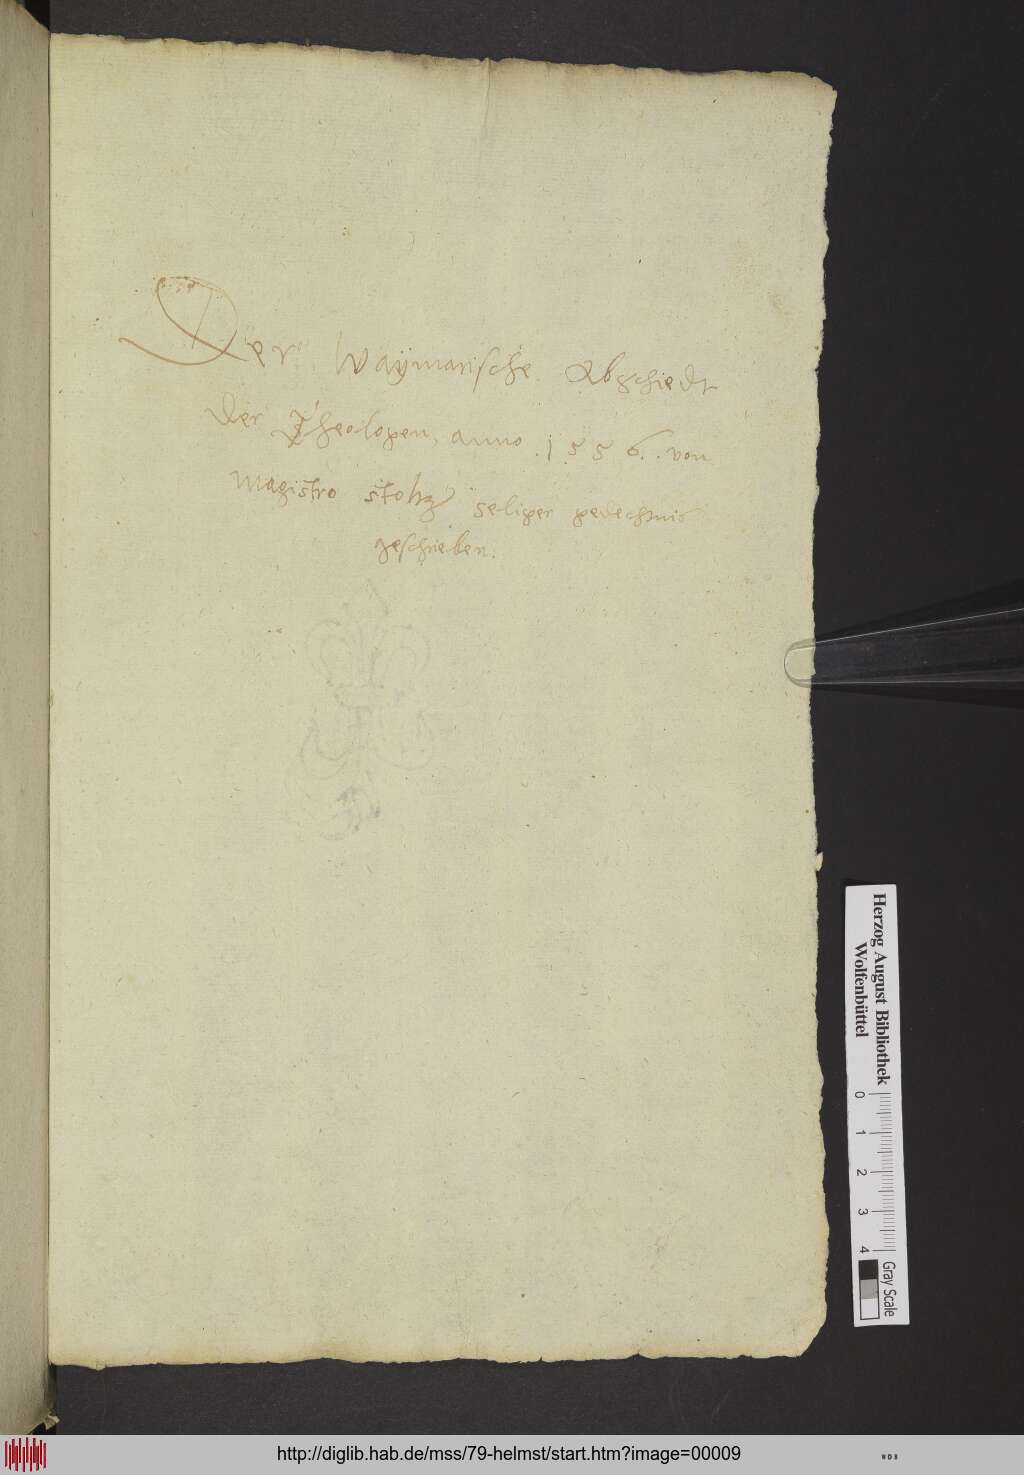 Der Waÿmarische Abschiedt
der Theologen, anno .1556. von
magistro Stoltz seliger gedechtnis
geschrieben.
Herzog August Bibliothek
Wolfenbüttel
0 1 2 3 4
Gray Scale
http://diglib.hab.de/mss/79-helmst/start.htm?image=00009